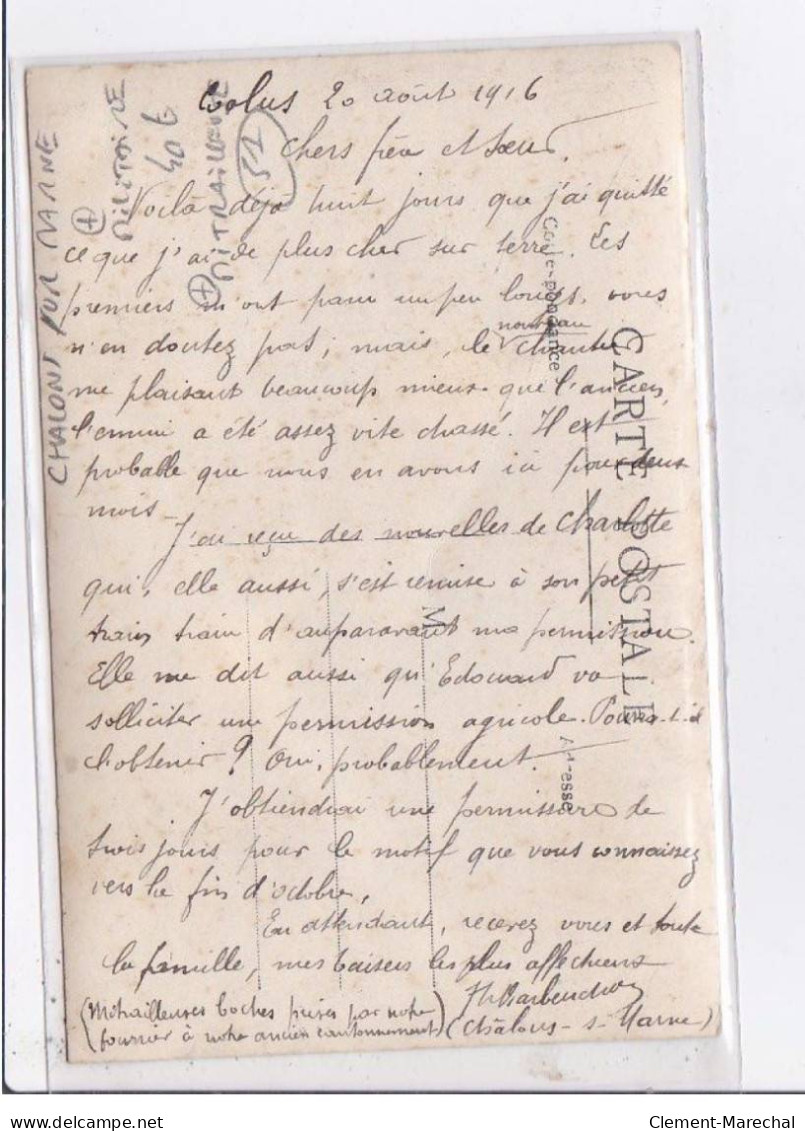 Colus 20 août 1916
Chers frère et soeur,
Voilà déjà huit jours que j'ai quitté
ce que j'ai de plus cher sur terre. Les
premiers m'ont paru un peu longs, vous
n'en doutez pas; mais, le nouveau
me plaisant beaucoup mieux que l'ancien,
l'ennui a été assez vite chassé. Il est
probable que nous en avons ici pour deux
mois.
J'ai reçu des nouvelles de Charlotte
qui, elle aussi, s'est remise à son petit
train train d'auparavant ma permission.
Elle me dit aussi qu'Edouard va
solliciter une permission agricole. Pourra-t-il
l'obtenir? Oui, probablement.
J'obtiendrai une permission de
trois jours pour le motif que vous connaissez
vers la fin d'octobre,
En attendant, recevez vous et toute
la famille, mes baisers les plus affectueux
(Mitrailleuses boches prises par notre
fourrier à notre ancien cantonnement)
(Châlons-s-Marne)
CHALONS SUR MARNE
MILITAIRE
406
MITRAILLEUSE
51
CARTE POSTALE
Correspondance
Adresse
M
Clement-Marechal